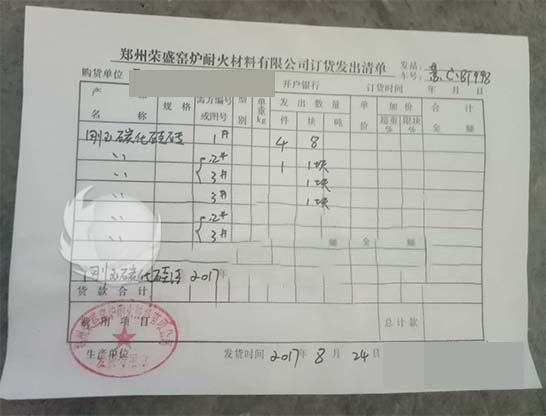 郑州荣盛窑炉耐火材料有限公司订货发出清单
发站:
车号:
购货单位 开户银行 订货时间 年 月 日
产品名称 规格 需方编号或图号 型别 单重kg 发出数量 单价 加价 合计
件 块 吨 超重% 限块% 金额
刚玉碳化硅砖 1# 4 8
〃 2# 1 1块
〃 3# 1块
〃 3# 1块
〃 2#
〃 3#
额 金 额
刚玉碳化硅砖 2017年
货款合计
费用项目 总计款
生产单位
发货时间 2017年 8月 24日